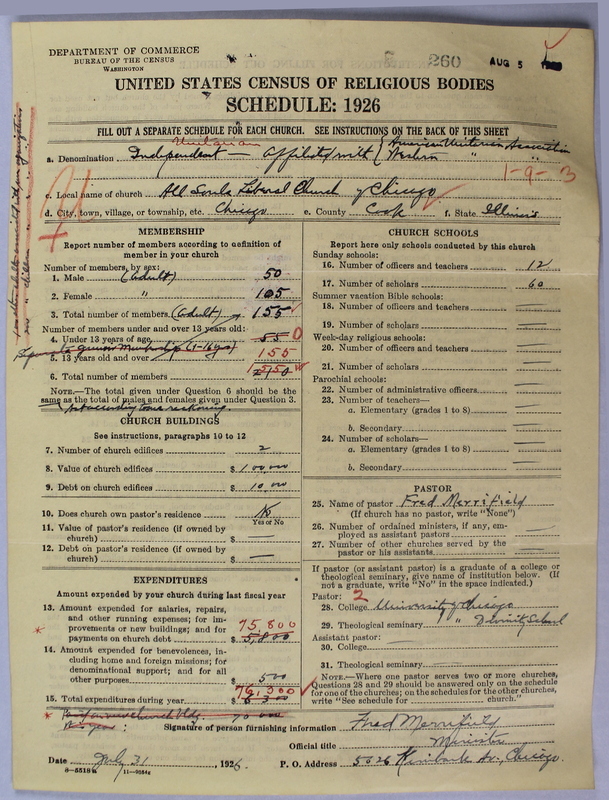 DEPARTMENT OF COMMERCE
BUREAU OF THE CENSUS
WASHINGTON
260
AUG 5
UNITED STATES CENSUS OF RELIGIOUS BODIES
SCHEDULE: 1926
FILL OUT A SEPARATE SCHEDULE FOR EACH CHURCH. SEE INSTRUCTIONS ON THE BACK OF THIS SHEET
Unitarian
a. Denomination Independent — affiliated with { American Unitarian Association
Western " "
1-9-3
c. Local name of church All Souls Liberal Church of Chicago
d. City, town, village, or township, etc. Chicago e. County Cook f. State Illinois
MEMBERSHIP
Report number of members according to definition of
member in your church
Number of members, by sex:
1. Male (adult) 50
2. Female " 105
3. Total number of members (adult) 155
Number of members under and over 13 years old:
4. Under 13 years of age 55 0
5. 13 years old and over 155
6. Total number of members 155
NOTE.—The total given under Question 6 should be the
same as the total of males and females given under Question 3.
CHURCH BUILDINGS
See instructions, paragraphs 10 to 12
7. Number of church edifices 2
8. Value of church edifices $ 100,000
9. Debt on church edifices $ 10,000
10. Does church own pastor's residence No
Yes or No
11. Value of pastor's residence (if owned by
church) $ —
12. Debt on pastor's residence (if owned by
church) $ —
EXPENDITURES
Amount expended by your church during last fiscal year
13. Amount expended for salaries, repairs,
and other running expenses; for im-
provements or new buildings; and for
payments on church debt $ 5,800 75,800
14. Amount expended for benevolences, in-
cluding home and foreign missions; for
denominational support; and for all
other purposes $ 500
15. Total expenditures during year $ 6300 76,300
CHURCH SCHOOLS
Report here only schools conducted by this church
Sunday schools:
16. Number of officers and teachers 12
17. Number of scholars 60
Summer vacation Bible schools:
18. Number of officers and teachers —
19. Number of scholars —
Week-day religious schools:
20. Number of officers and teachers —
21. Number of scholars —
Parochial schools:
22. Number of administrative officers —
23. Number of teachers—
a. Elementary (grades 1 to 8) —
b. Secondary —
24. Number of scholars—
a. Elementary (grades 1 to 8) —
b. Secondary —
PASTOR
25. Name of pastor Fred Merrifield
(If church has no pastor, write "None")
26. Number of ordained ministers, if any, em-
ployed as assistant pastors —
27. Number of other churches served by the
pastor or his assistants —
If pastor (or assistant pastor) is a graduate of a college or
theological seminary, give name of institution below. (If
not a graduate, write "No" in the space indicated.)
Pastor: 2
28. College University of Chicago
29. Theological seminary " " Divinity School
Assistant pastor:
30. College
31. Theological seminary
NOTE.—Where one pastor serves two or more churches,
Questions 28 and 29 should be answered only on the schedule
for one of the churches; on the schedules for the other churches,
write "See schedule for church."
* Paid on new church bldg. 70 000
Signature of person furnishing information Fred Merrifield
Official title Minister
Date July 31, 1926. P. O. Address 5026 Kimbark Av., Chicago.
8—5518a 11—9284